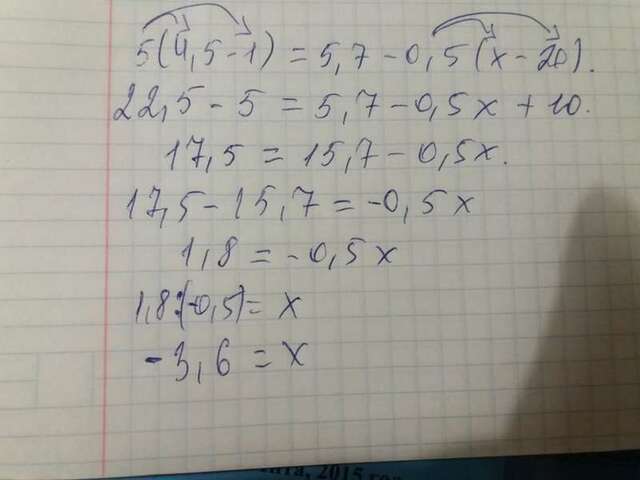 5(4,5-1)=5,7-0,5(x-20).
22,5-5=5,7-0,5x+10.
17,5=15,7-0,5x.
17,5-15,7=-0,5x
1,8=-0,5x
1,8:(-0,5)=x
-3,6=x